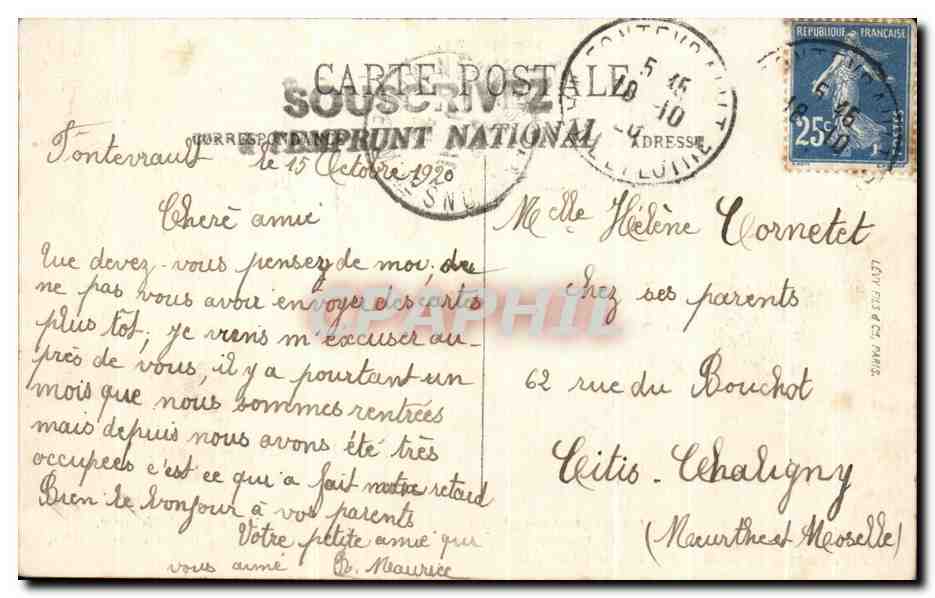 CARTE POSTALE
SOUSCRIVEZ
EMPRUNT NATIONAL
CORRESPONDANCE
ADRESSE
FONTEVRAULT
5 45
18 -10
RÉPUBLIQUE FRANÇAISE
25c
POSTES
Fontevrault le 15 Octobre 1920
Cherè amie
Que devez-vous pensez de moi, de
ne pas vous avoir envoyer des cartes
plus tôt, je viens m'excuser au-
près de vous, il y a pourtant un
mois que nous sommes rentrées
mais depuis nous avons été très
occupées c'est ce qui a fait notre retard
Bien le bonjour à vos parents
Votre petite amie qui
vous aime
Maurice
Melle Hélène Cornetet
Chez ses parents
62 rue du Bouchot
Citis-Chaligny
(Meurthe et Moselle)
LÉVY FILS & Cie, PARIS.
CPAPHIL